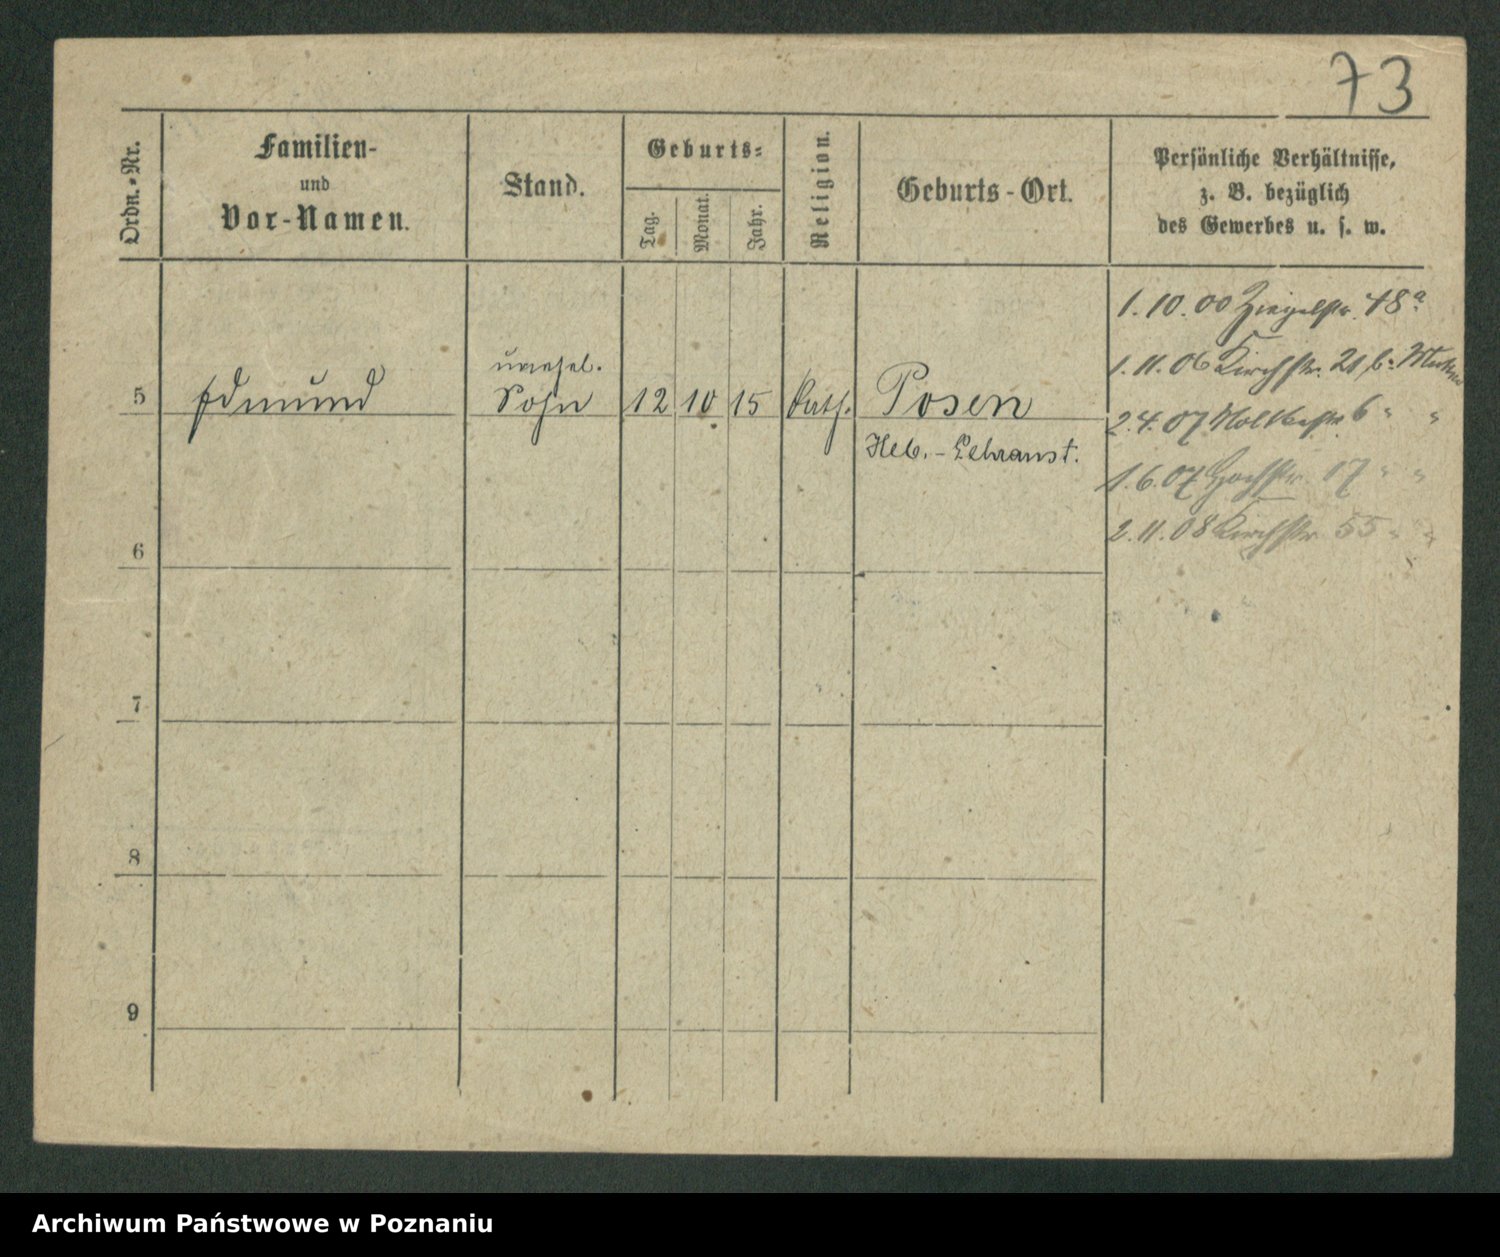 73
Ordn.-Nr.
Familien-
und
Vor-Namen.
Stand.
Geburts-
Tag.
Monat.
Jahr.
Religion.
Geburts-Ort.
Persönliche Verhältnisse,
z. B. bezüglich
des Gewerbes u. s. w.
5
Edmund
unehel.
Sohn
12 10 15
kath.
Posen
Heb.-Lehranst.
1.10.00 Ziegelstr. 48a
1.11.06 Kirchstr. 21, b.
2.4.07 Moltkestr. 6 " "
1.6.07 Hochstr. 17 " "
2.11.08 Kirchstr. 55 " "
6
7
8
9
Archiwum Państwowe w Poznaniu